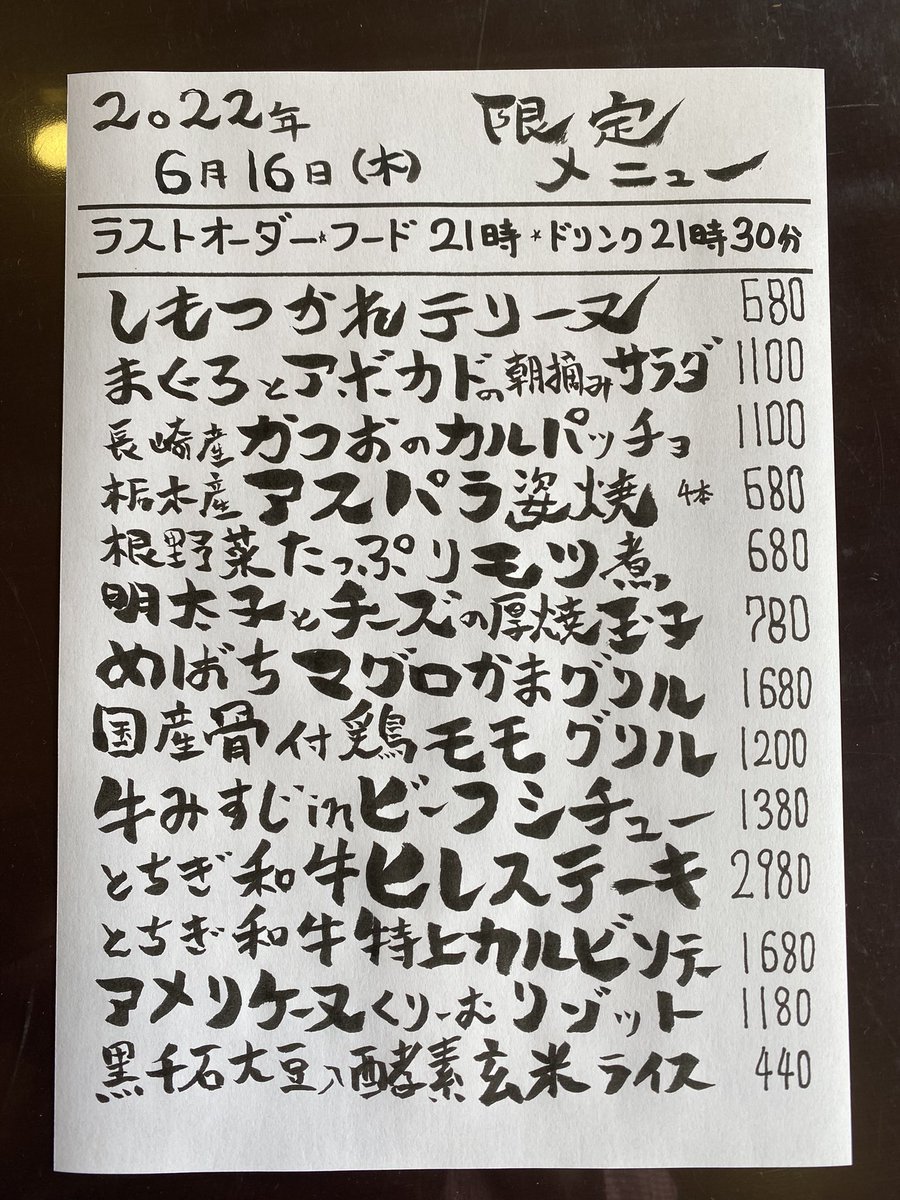 2022年
6月16日(木)
限定
メニュー
ラストオーダー*フード21時*ドリンク21時30分
しもつかれテリーヌ 680
まぐろとアボカドの朝摘みサラダ 1100
長崎産かつおのカルパッチョ 1100
栃木産アスパラ姿焼 4本 680
根野菜たっぷりモツ煮 680
明太子とチーズの厚焼玉子 780
めばちマグロかまグリル 1680
国産骨付鶏モモグリル 1200
牛みすじinビーフシチュー 1380
とちぎ和牛ヒレステーキ 2980
とちぎ和牛特上カルビソテー 1680
アメリケーヌくりーむリゾット 1180
黒千石大豆入酵素玄米ライス 440